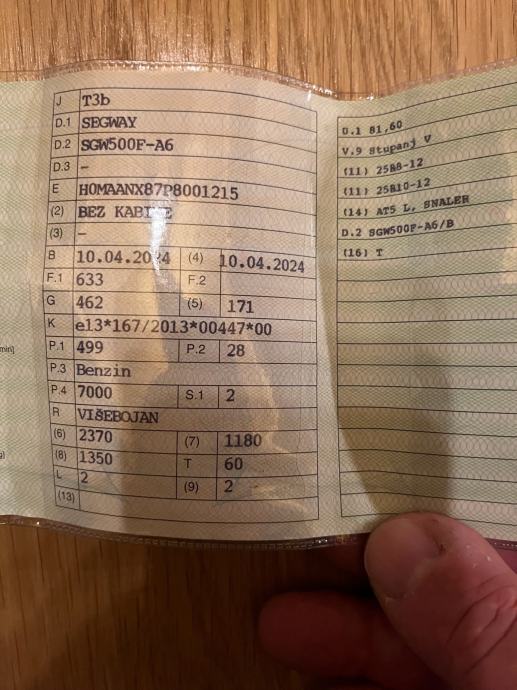 J T3b
D.1 SEGWAY
D.2 SGW500F-A6
D.3 –
E H0MAANX87P8001215
(2) BEZ KABINE
(3) –
B 10.04.2024 (4) 10.04.2024
F.1 633 F.2
G 462 (5) 171
K e13*167/2013*00447*00
P.1 499 P.2 28
P.3 Benzin
P.4 7000 S.1 2
R VIŠEBOJAN
(6) 2370 (7) 1180
(8) 1350 T 60
L 2 (9) 2
(13)
min]
D.1 81,60
V.9 Stupanj V
(11) 25X8-12
(11) 25X10-12
(14) ATS L, SNALER
D.2 SGW500F-A6/B
(16) T